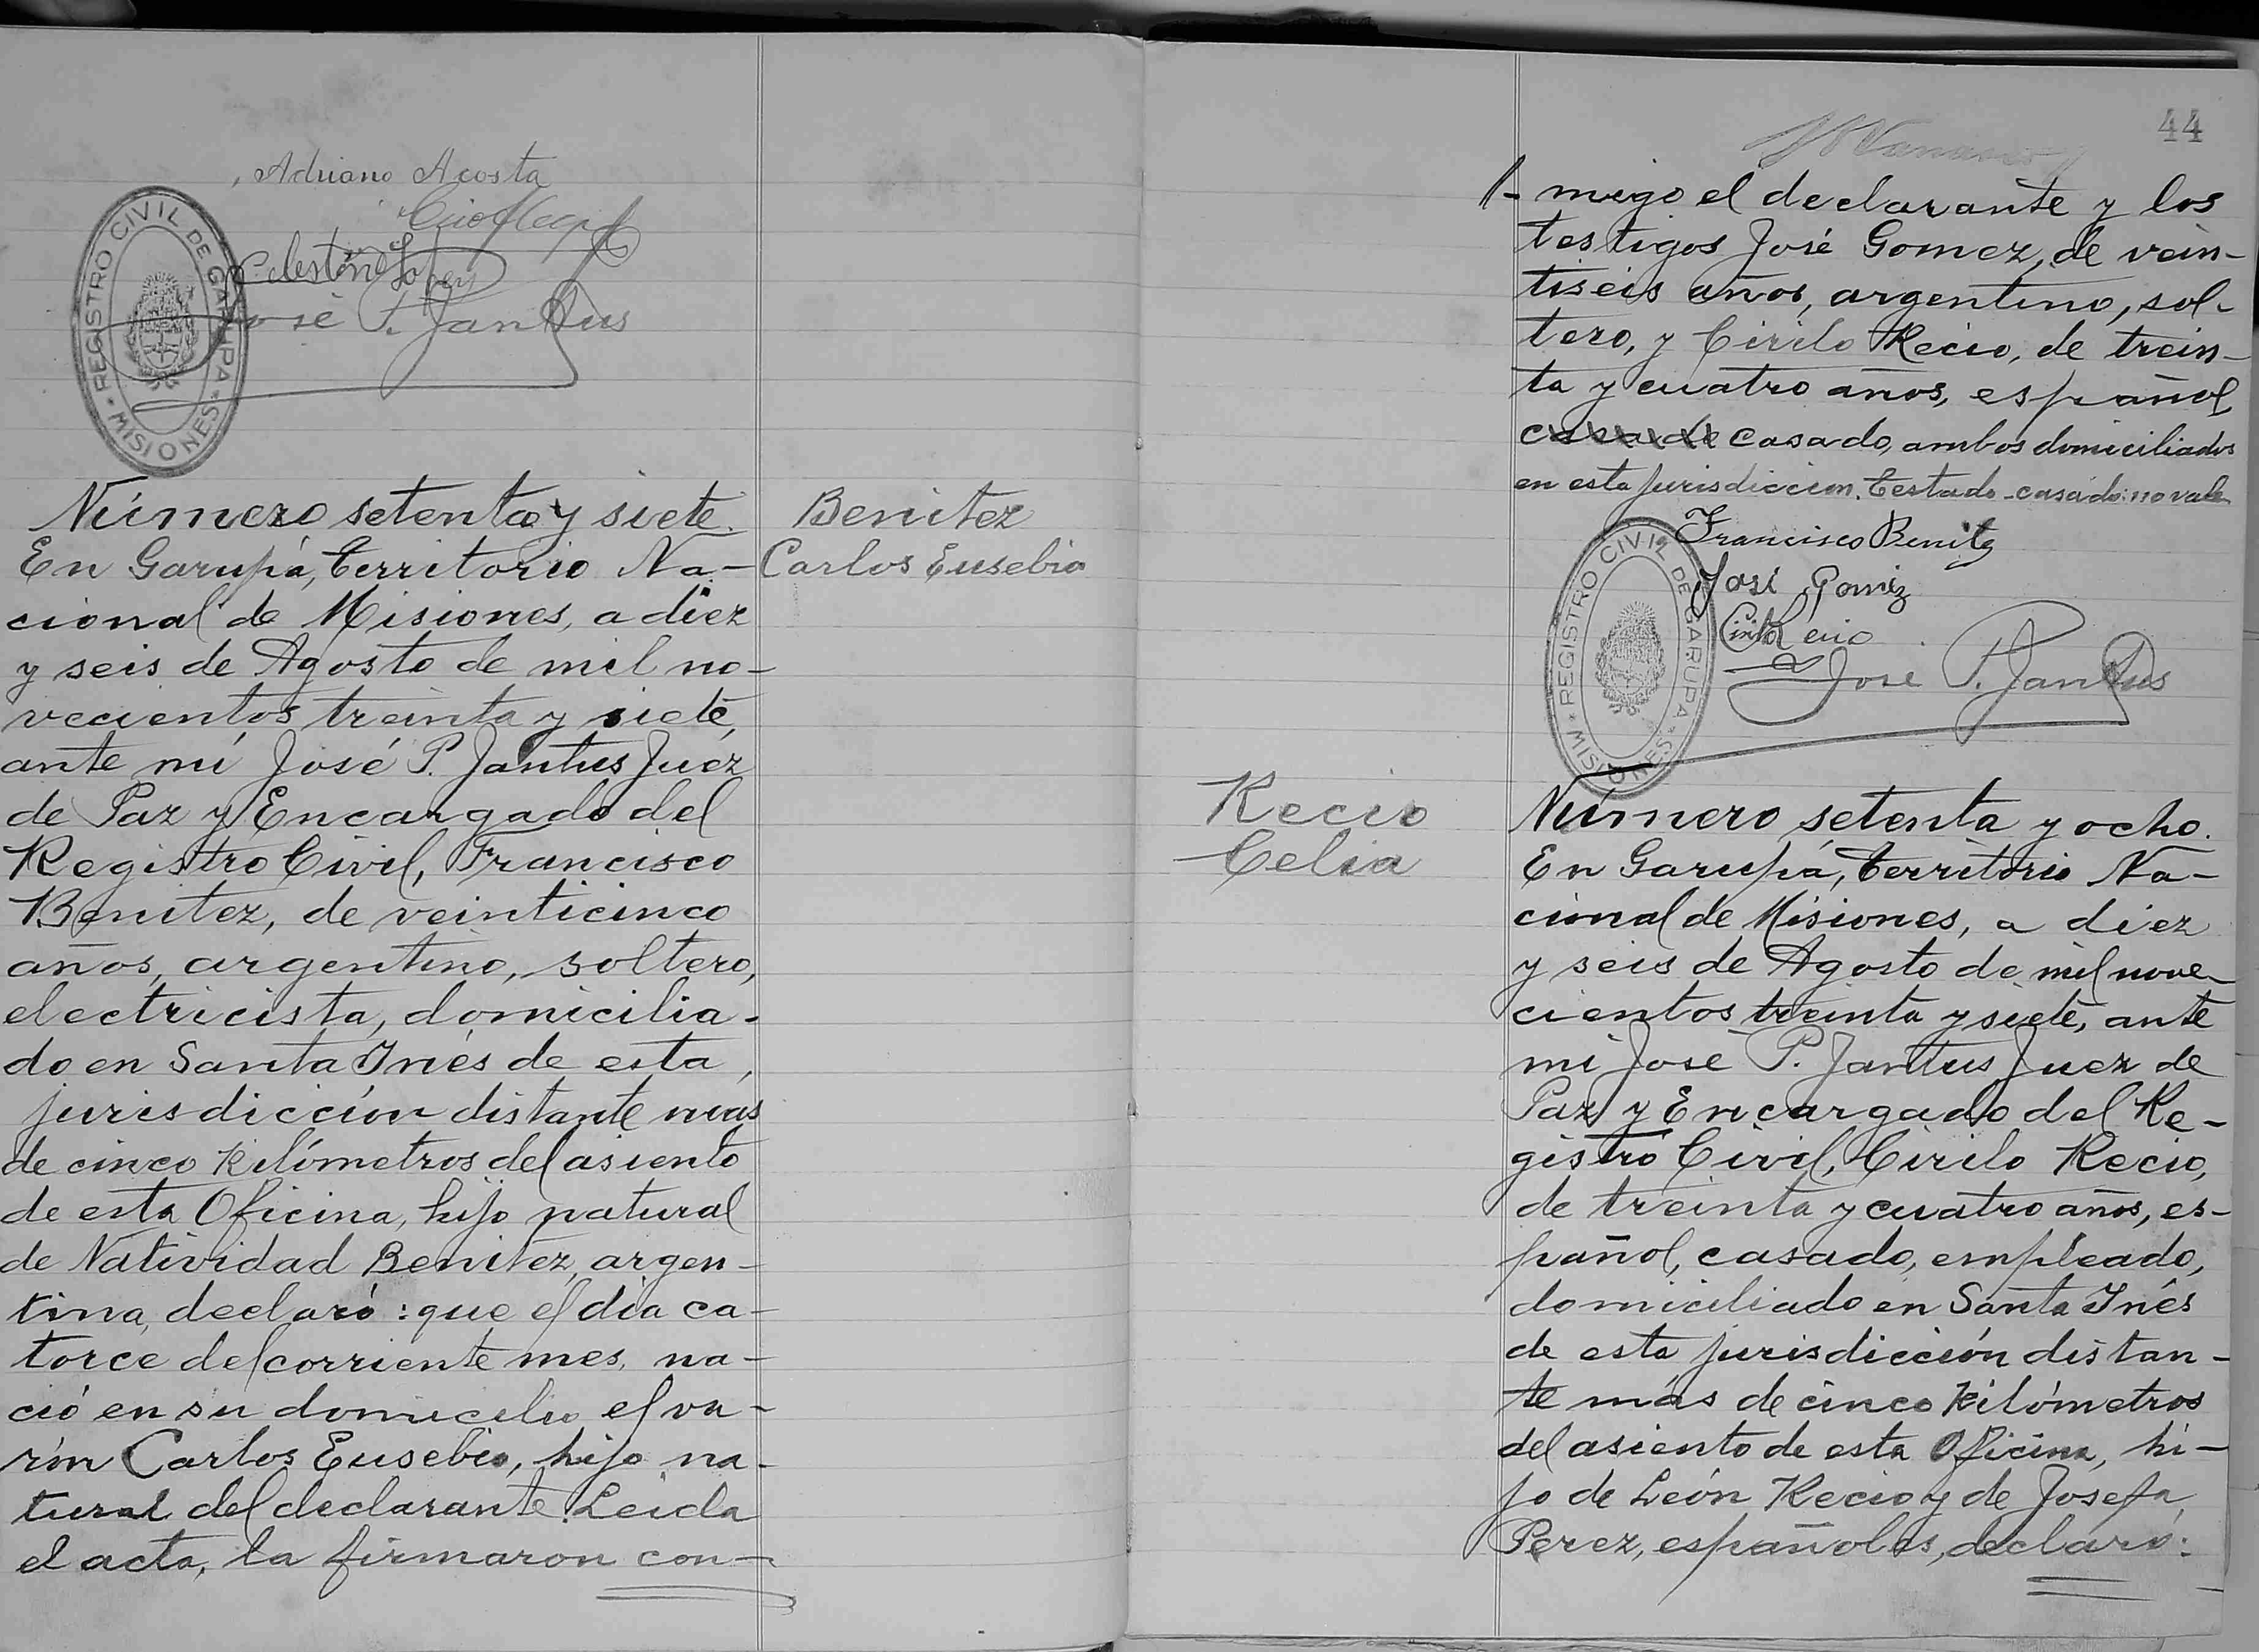 Adriano Acosta
Celestino Lopez
José P. Jantus
REGISTRO CIVIL DE GARUPA
MISIONES
Número setenta y siete.
En Garupá, Territorio Na-
cional de Misiones, a diez
y seis de Agosto de mil no-
vecientos treinta y siete,
ante mí José P. Jantus Juez
de Paz y Encargado del
Registro Civil, Francisco
Benitez, de veinticinco
años, argentino, soltero,
electricista, domicilia-
do en Santa Inés de esta
jurisdicción distante mas
de cinco kilómetros del asiento
de esta Oficina, hijo natural
de Natividad Benitez, argen-
tina, declaró: que el día ca-
torce del corriente mes, na-
ció en su domicilio el va-
rón Carlos Eusebio, hijo na-
tural del declarante. Leida
el acta, la firmaron con-
Benitez
Carlos Eusebio
44
migo el declarante y los
testigos José Gomez, de vein-
tiseis años, argentino, sol-
tero, y Cirilo Recio, de trein-
ta y cuatro años, español,
casado, ambos domiciliados
en esta jurisdiccion. Testado-casado: no vale
Francisco Benitez
José Gomez
Cirilo Recio
José P. Jantus
REGISTRO CIVIL DE GARUPA
MISIONES
Recio
Celia
Número setenta y ocho.
En Garupá, Territorio Na-
cional de Misiones, a diez
y seis de Agosto de mil nove-
cientos treinta y siete, ante
mí José P. Jantus Juez de
Paz y Encargado del Re-
gistro Civil, Cirilo Recio,
de treinta y cuatro años, es-
pañol, casado, empleado,
domiciliado en Santa Inés
de esta jurisdicción distan-
te más de cinco kilómetros
del asiento de esta Oficina, hi-
jo de León Recio y de Josefa
Perez, españoles, declaró: